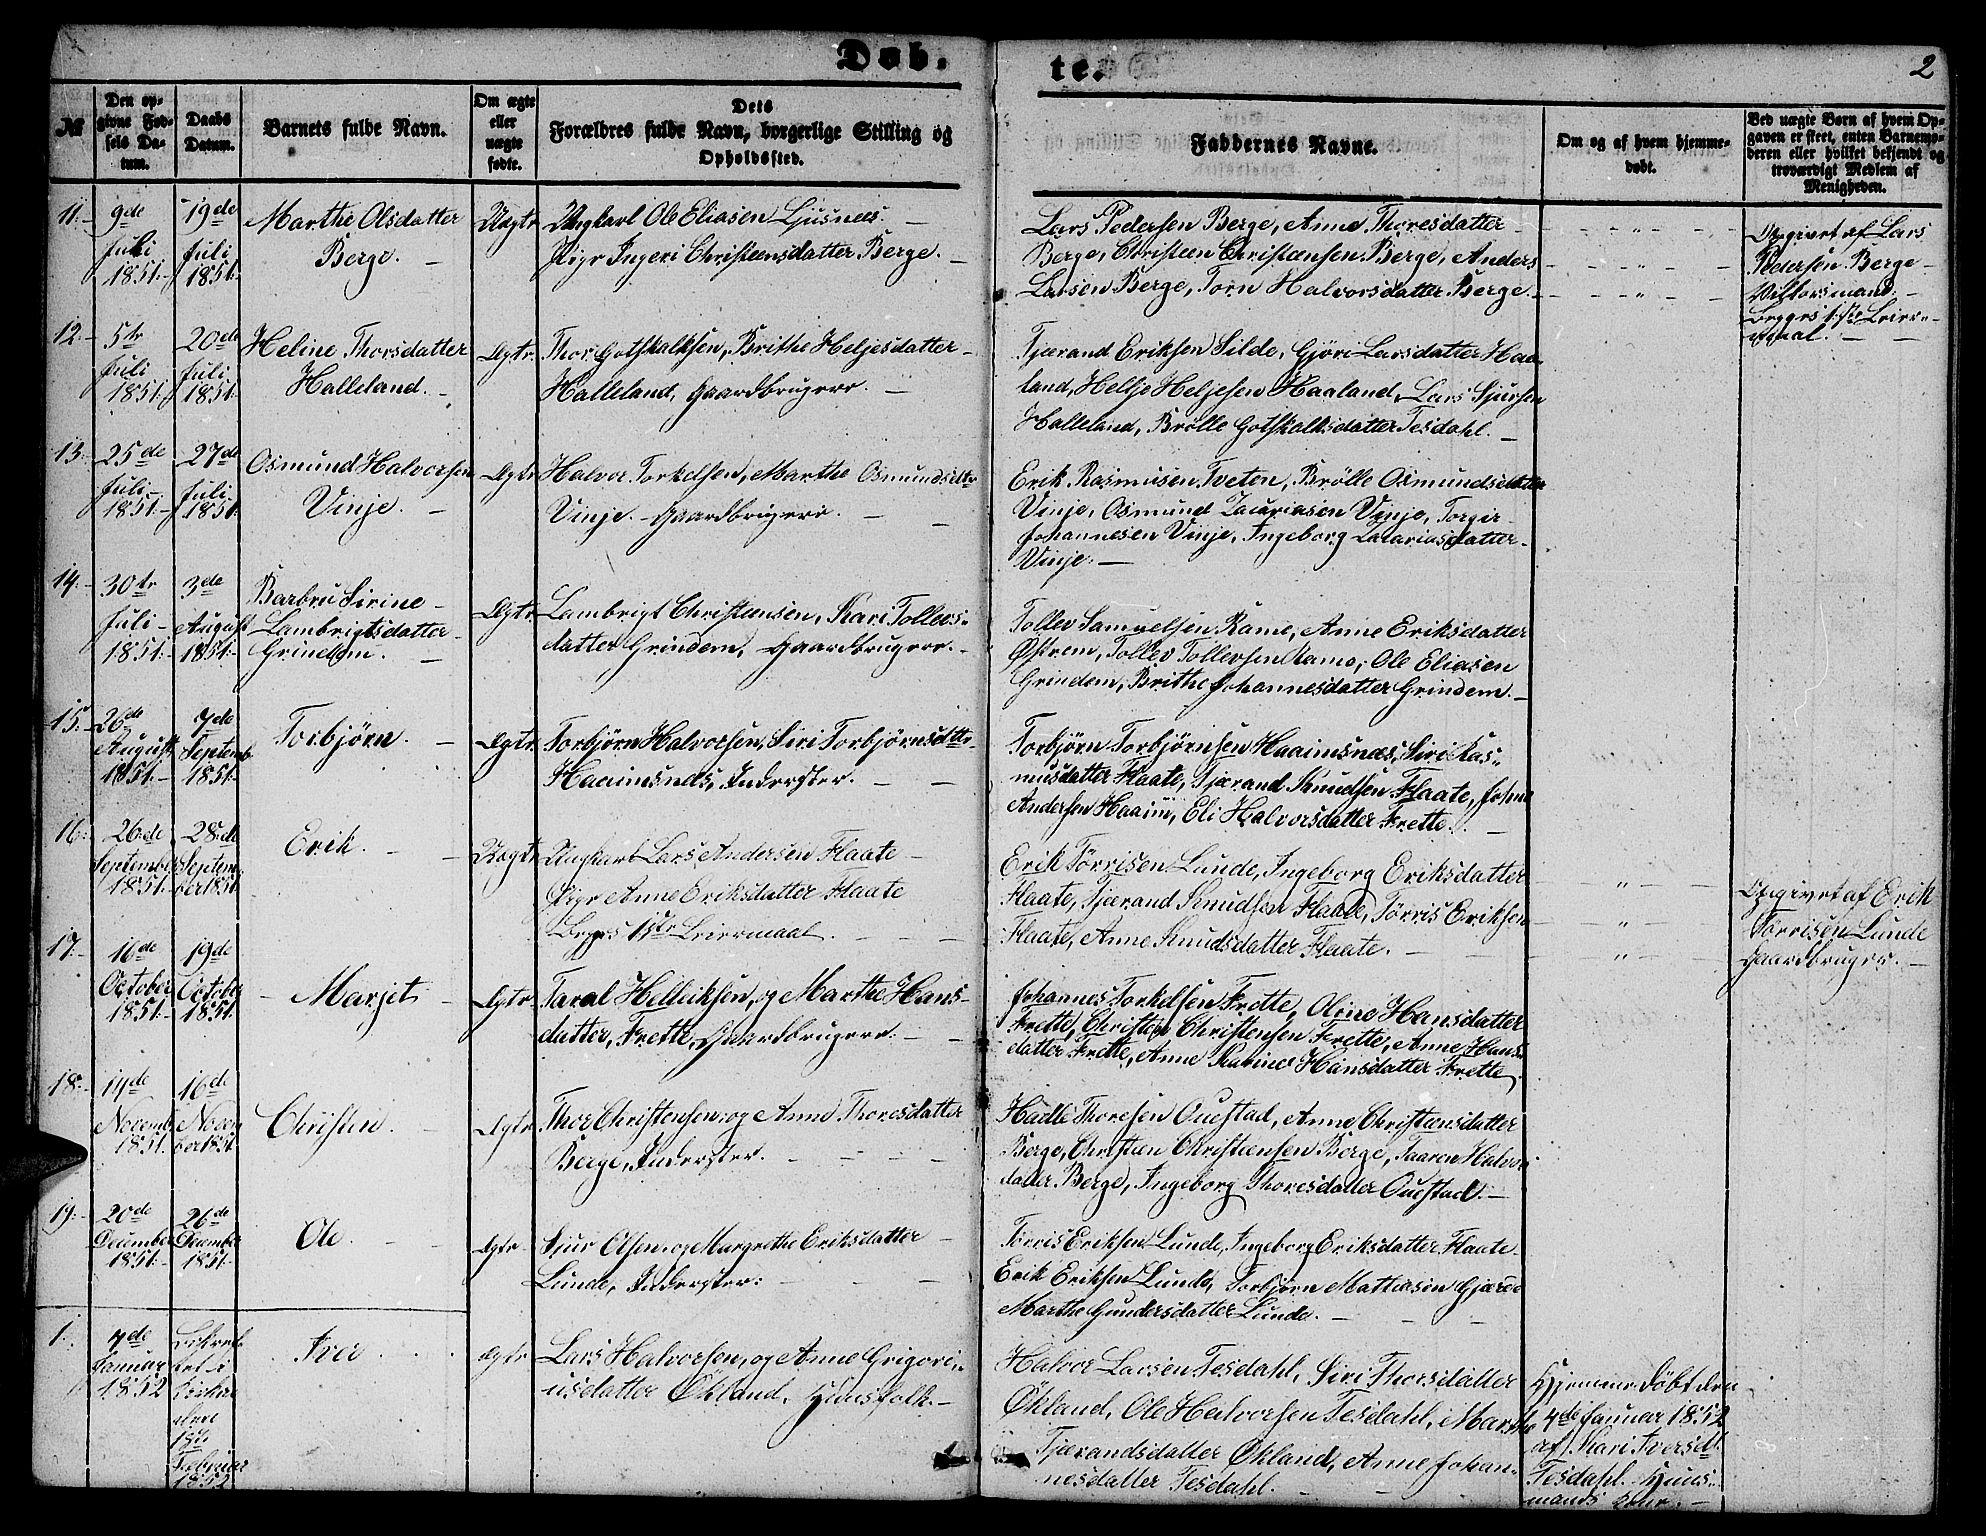 Døb.
te.
2
№
Den op-
givne Fød-
sels Da-
tum.
Daabs
Datum.
Barnets fulde Navn.
Om ægte
eller
uægte
fødte.
Dets
Forældres fulde Navn, borgerlige Stilling og
Opholdssted.
Faddernes Navne.
Om og af hvem hjemme-
døbt.
Ved uægte Børn af hvem Op-
gaven er skeet, enten Barnemo-
deren eller hvilket bekjendt og
troværdigt Medlem af
Menigheden.
11.
9de
Juli
1851.
19de
Juli
1851.
Marthe Olsdatter
Berge.
Uægte
Ungkarl Ole Eliasen Ljusnæs.
Pige Ingeri Christiensdatter Berge.
Lars Pedersen Berge, Anne Thoresdatter
Berge, Christien Christiensen Berge, Anders
Larsen Berge, Torn Halvorsdatter Berge.
Opgivet af Lars
Pedersen Berge
Begges 1ste Leier-
maal.
12.
5te
Juli
1851.
20de
Juli
1851.
Heline Thorsdatter
Halleland.
Ægte
Thor Gotskalksen, Brithe Heljesdatter
Halleland, Gaardbrugere.
Tjærand Eriksen Silde, Gjøri Larsdatter Haa-
land, Helje Heljesen Haaland, Lars Sjursen
Halleland, Brølle Gotskalksdatter Tesdahl.
13.
25de
Juli
1851.
27de
Juli
1851.
Osmund Halvorsen
Vinje.
Ægte
Halvor Torkelsen, Marthe Osmundsdtr
Vinje. Gaardbrugere.
Erik Rasmusen Tveten, Brølle Osmundsdatter
Vinje, Osmund Zacariasen Vinje, Torgir
Johannesen Vinje, Ingeborg Zacariasdatter
Vinje.
14.
30te
Juli
1851.
3de
August
1851.
Barbru Sirine
Lambrigtsdatter
Grindem.
Ægte
Lambrigt Christiensen, Kari Tollevs-
datter Grindem, Gaardbrugere.
Tollev Samuelsen Rame, Anne Eriksdatter
Østrem, Tollev Tollevsen Rame, Ole Eliasen
Grindem, Brithe Johannesdatter Grindem.
15.
26de
August
1851.
7de
Septemb
1851.
Torbjørn.
Ægte
Torbjørn Halvorsen, Siri Torbjørnsdtr
Haaimsnæs, Inderster.
Torbjørn Torbjørnsen Haaimsnæs, Siri Ras-
musdatter Flaate, Tjærand Knudsen Flaate, Johan
Andersen Haaim, Eli Halvorsdatter Frette.
16.
26de
September
1851.
28de
Septem-
ber 1851.
Erik.
Uægte
Ungkarl Lars Andersen Flaate
Pige Anne Eriksdatter Flaate
Begges 1ste Leiermaal.
Erik Tørrisen Lunde, Ingeborg Eriksdatter
Flaate, Tjærand Knudsen Flaate, Tørris Eriksen
Flaate, Anne Knudsdatter Flaate.
Opgivet af Erik
Tørrisen Lunde
Gaardbruger.
17.
16de
October
1851.
19de
October
1851.
Marjit
Ægte
Taral Helliksen, og Marthe Hans-
datter, Frette, Gaardbrugere.
Johannes Torkelsen Frette, Oline Hansdatter
Frette, Christen Christensen Frette, Anne Hans-
datter Frette, Anne Karine Hansdatter Frette
18.
14de
Novemb
1851.
16de
Novem
ber 1851.
Christen
Ægte
Thor Christensen, og Anne Thoresdatter
Berge, Inderster.
Hadle Thoresen Ouestad, Anne Christiensdatter
Berge, Christien Christiensen Berge, Taaren Halvor
datter Berge, Ingeborg Thoresdatter Ouestad.
19.
20de
December
1851.
26de
December
1851.
Ole.
Ægte
Sjur Olsen, og Margrethe Eriksdatter
Lunde, Inderster.
Tørris Eriksen Lunde, Ingeborg Eriksdatter Flaate
Erik Eriksen Lunde, Torbjørn Mathiasen Gjærde
Marthe Gundersdatter Lunde.
1.
4de
Januar
1852
i
Kirken
den
Februar
1852
Iver
Ægte
Lars Halvorsen, og Anne Grigori-
usdatter Økland, Huusfolk.
Halvor Larsen Tesdahl, Siri Thorsdatter
Økland, Ole Halvorsen Tesdahl, Marthe
Tjærandsdatter Økland, Anne Johan-
nesdatter Tesdahl.
Hjemmedøbt den
4de Januar 1852
af Kari Iversdt
Tesdahl, Huus-
mands Kone.